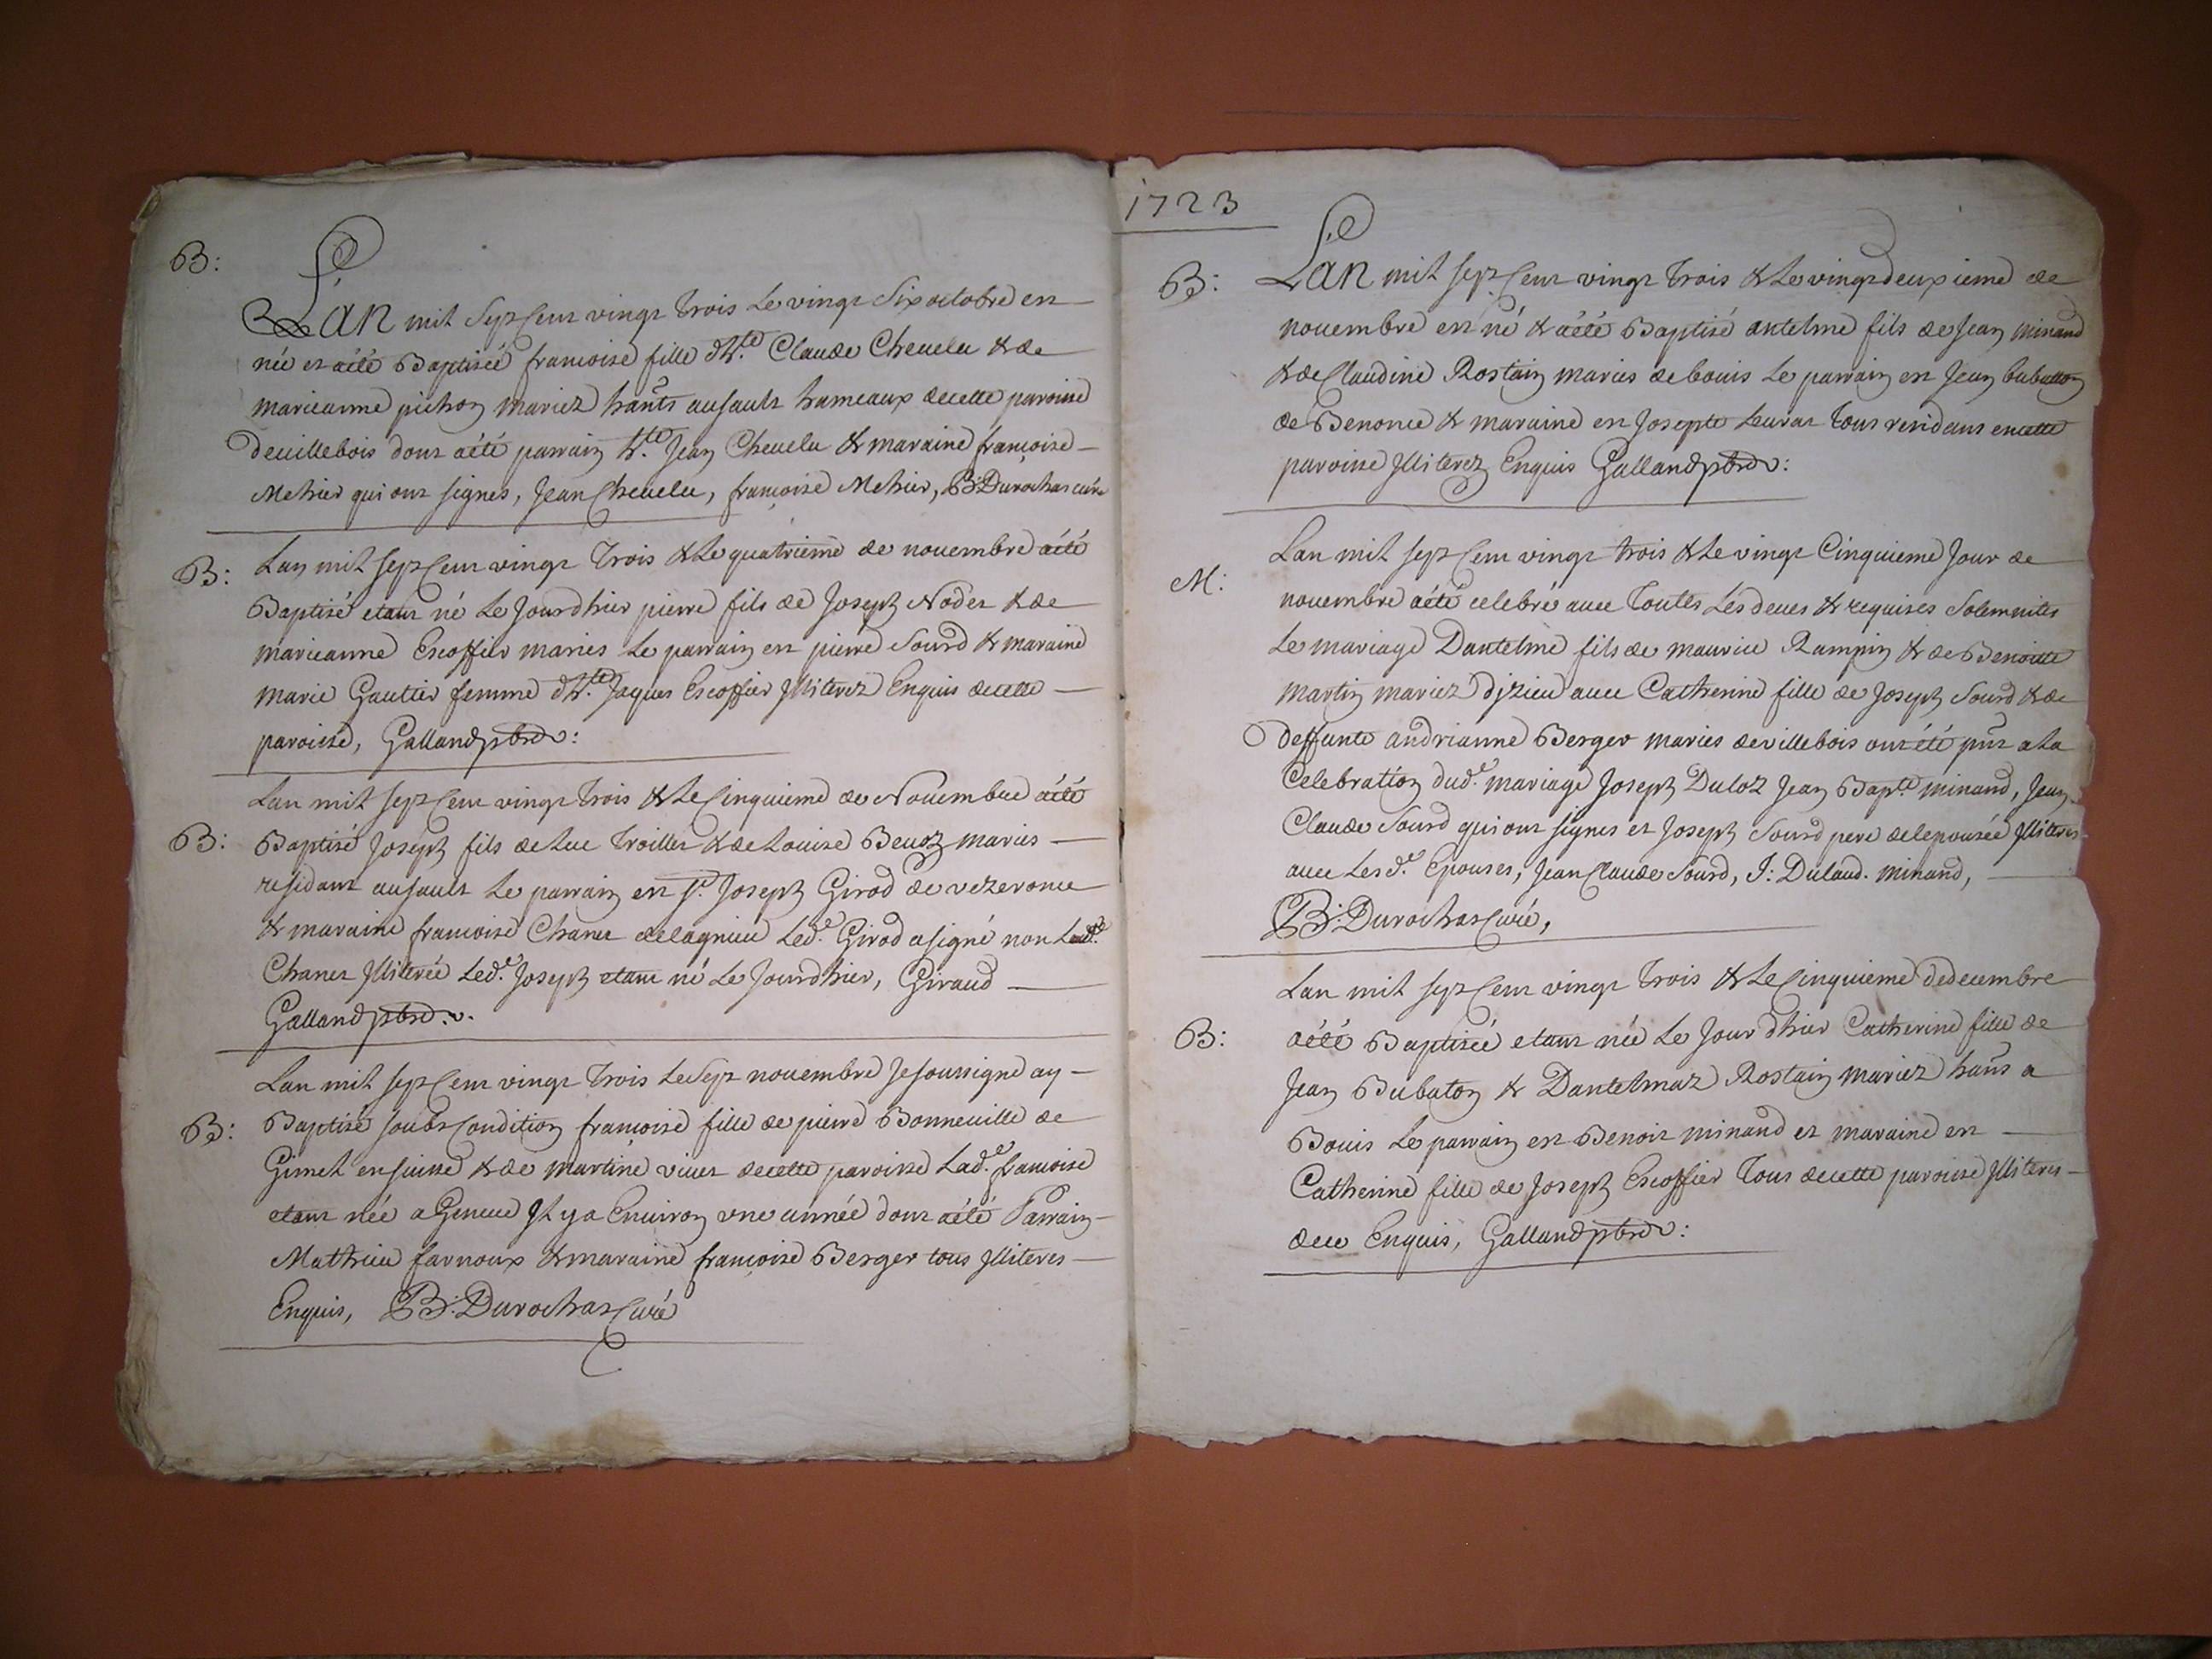 1723
B:
Lan mil sept cent vingt trois le vingt six octobre est
née et a été Baptisée francoise fille d'h.te Claude Cheuelu & de
marieanne pichon mariez hants au sault hameaux de cette paroisse
de uillebois dont a été parrain h.te Jean Cheuelu & maraine françoise
Mehier qui ont signes, Jean Cheuelu, francoise Mehier, B: Durochas curé
B:
Lan mil sept cent vingt trois & le quatrieme de nouembre a été
Baptisé etant né le jourdhier pierre fils de Joseph Noder & de
marieanne Escoffier maries le parrain est pierre Sourd & maraine
marie Gautier femme d'h.te Jaques Escoffier Illiterez Enquis de cette
paroisse, Galland pbre v:
B:
Lan mil sept cent vingt trois & le cinquieme de Nouembre a été
Baptisé Joseph fils de Luc Troillet & de Louise Beuoz maries
residant au sault le parrain est s.r Joseph Girod de vezeronce
& maraine francoise Chanet de lagnieu led.t Girod a signé non
Chanet Illiterée led.t Joseph etant né le jourdhier, Giraud
Galland pbre v.
B:
Lan mil sept cent vingt trois le sept nouembre Je soussigné ay
Baptisé soubs condition francoise fille de pierre Bonneuille de
Gimel en suisse & de martine viuet de cette paroisse lad.e francoise
etant née a Geneue Il y a Enuiron vne année dont a été Parrain
Mathieu farnoux & maraine francoise Berger tous Illiteres
Enquis, B: Durochas Curé
B:
Lan mil sept cent vingt trois & le vingt deuxieme de
nouembre est né & a été Baptisé antelme fils de Jean minand
& de Claudine Rostain maries de bouis le parrain est Jean bubatton
de Benonce & maraine est Josepte Leurat tous residans en cette
paroisse Illiterez Enquis Galland pbre v:
M:
Lan mil sept cent vingt trois & le vingt Cinquieme jour de
nouembre a été celebré auec toutes les deues & requises Solemnites
le mariage Dantelme fils de maurice Rampin & de Benoitte
martin mariez d'izieu auec Catherine fille de Joseph Sourd & de
deffunte andrianne Berger maries de villebois ont été pnts a la
Celebration dud.t mariage Joseph Duloz Jean Bap.te minand, Jean
Claude Sourd qui ont signes et Joseph Sourd pere de lepousée Illiteres
auec lesd.t Epouses, Jean Claude Sourd, J: Dulaud. minand,
B: Durochas Curé,
B:
Lan mil sept cent vingt trois & le Cinquieme de decembre
a été Baptisée etant née le jour dhier Catherine fille de
Jean Bubaton & Dantelmaz Rostain mariez hans a
Bouis le parrain est Benoit minand et maraine est
Catherine fille de Joseph Escoffier tous de cette paroisse Illiteres
de ce Enquis, Galland pbre v: